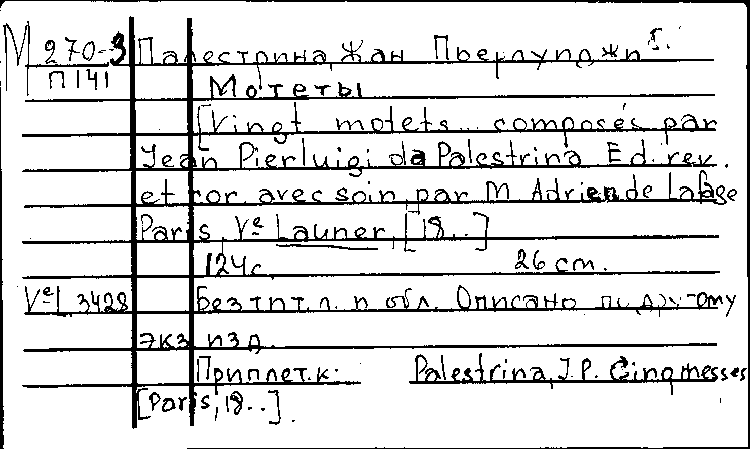 М 270-3 Палестрина, Жан Пьерлуиджи
П141 Мотеты
[Vingt motets... composés par
Jean Pierluigi da Palestrina Ed. rev.
et cor. avec soin par M Adrien de Lafage
Paris, Vᵉ Launer, [18..]
124 с. 26 cm.
Vᵉ L 3428 Без тит. л. и обл. Описано по другому
экз изд.
Приплет. к: Palestrina, J. P. Cinq messes
[Paris, 18..].